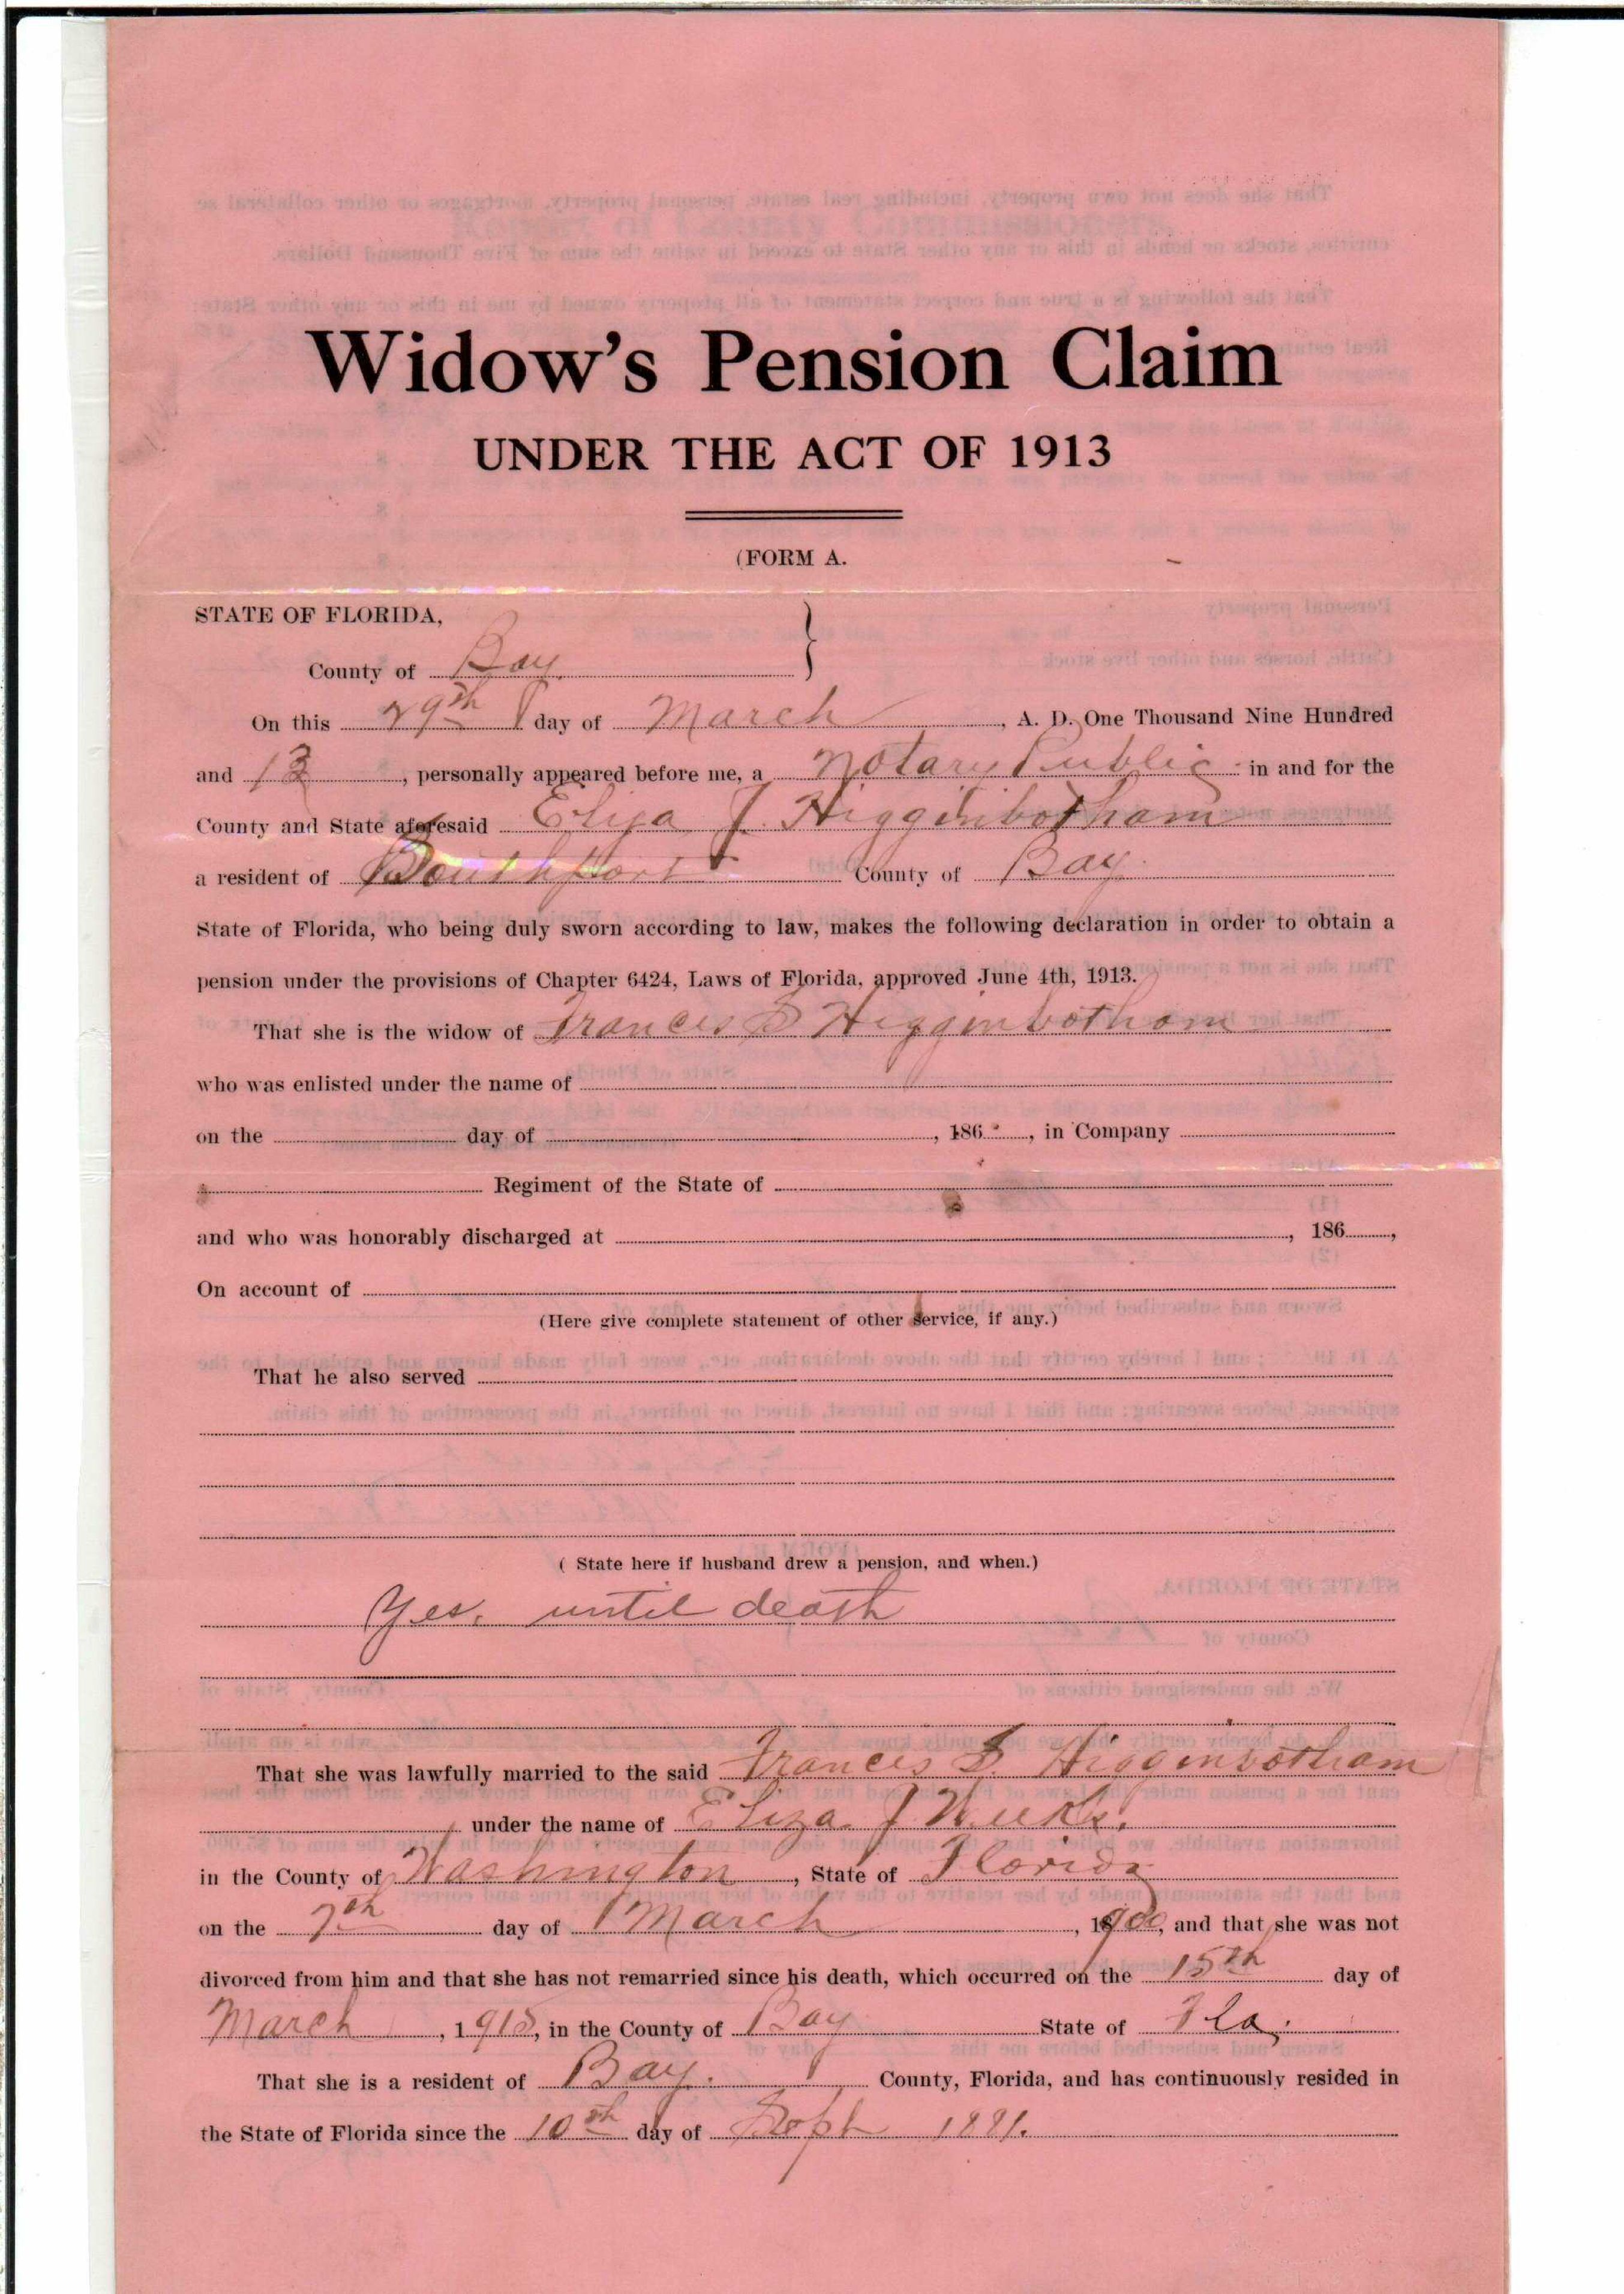 Widow's Pension Claim
UNDER THE ACT OF 1913
(FORM A.
STATE OF FLORIDA,
County of Bay
On this 29th day of March, A. D. One Thousand Nine Hundred
and 13, personally appeared before me, a Notary Public in and for the
County and State aforesaid Eliza J. Higginbotham
a resident of Southport County of Bay
State of Florida, who being duly sworn according to law, makes the following declaration in order to obtain a
pension under the provisions of Chapter 6424, Laws of Florida, approved June 4th, 1913.
That she is the widow of Frances Higginbotham
who was enlisted under the name of
on the day of , 186 , in Company
Regiment of the State of
and who was honorably discharged at , 186 ,
On account of
(Here give complete statement of other service, if any.)
That he also served
( State here if husband drew a pension, and when.)
Yes, until death
That she was lawfully married to the said Frances Higginbotham
under the name of Eliza J Weeks.
in the County of Washington, State of Florida
on the 7th day of March, 1900, and that she was not
divorced from him and that she has not remarried since his death, which occurred on the 15th day of
March, 1 , in the County of Bay State of Fla.
That she is a resident of Bay. County, Florida, and has continuously resided in
the State of Florida since the 10th day of Sept 1881.